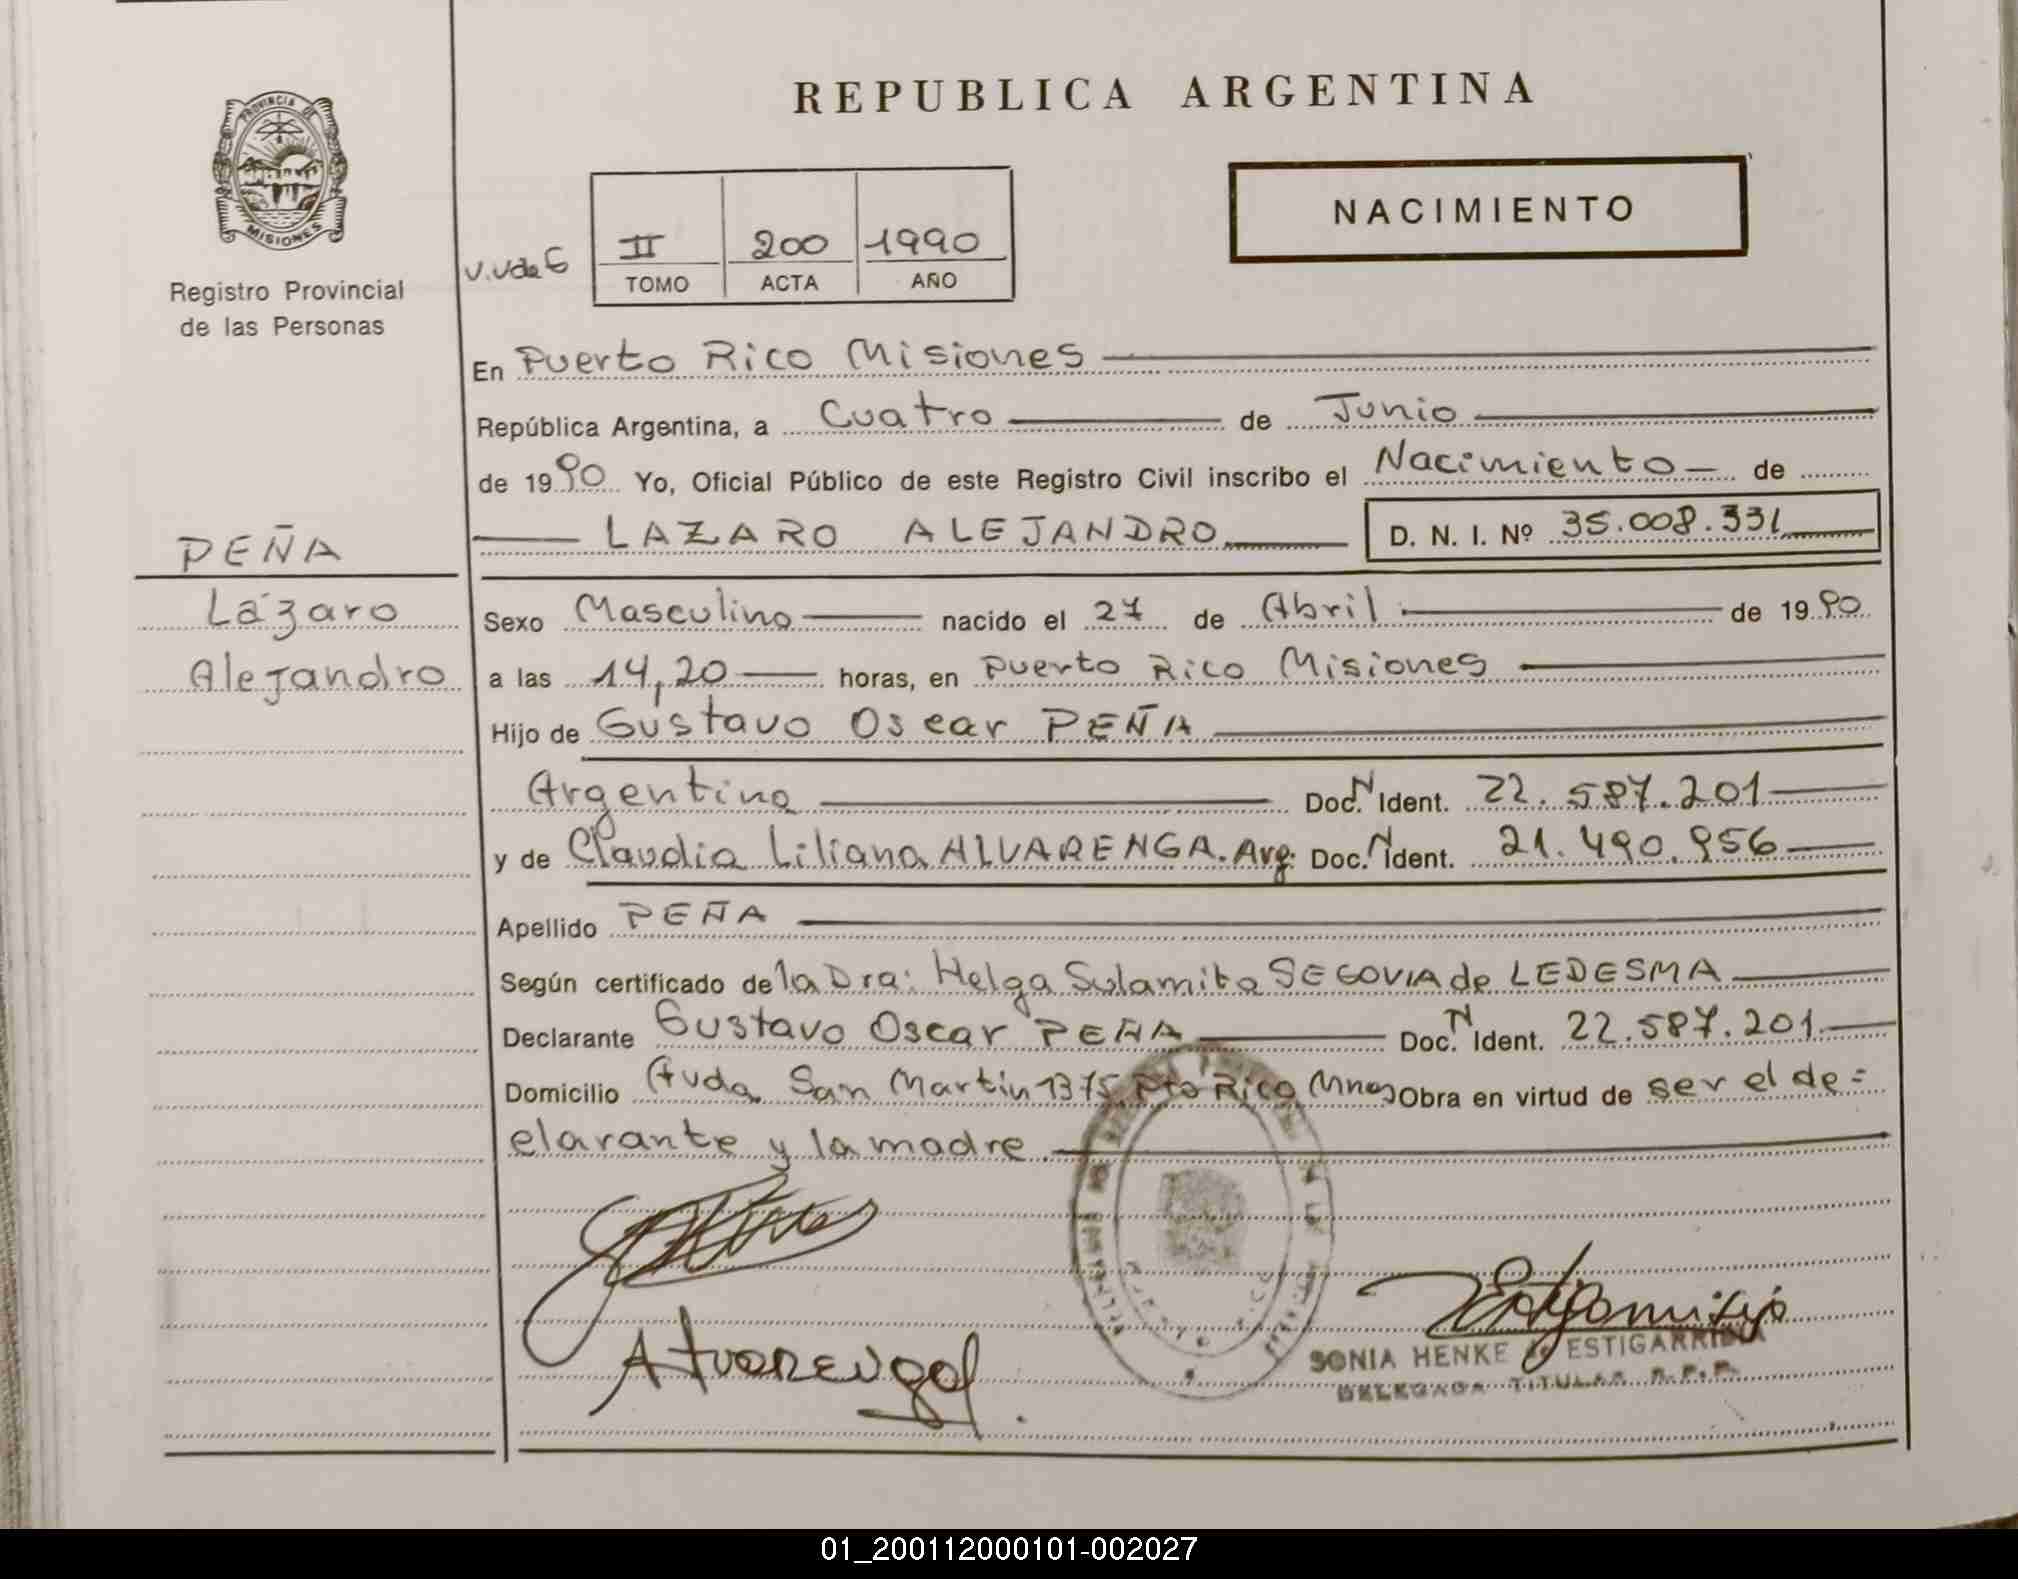 REPUBLICA ARGENTINA
PROVINCIA DE
MISIONES
Registro Provincial
de las Personas
NACIMIENTO
II 200 1990
TOMO ACTA AÑO
En Puerto Rico Misiones
República Argentina, a Cuatro de Junio
de 1990 Yo, Oficial Público de este Registro Civil inscribo el Nacimiento de
LAZARO ALEJANDRO D. N. I. Nº 35.008.331
PEÑA
Lázaro
Alejandro
Sexo Masculino nacido el 27 de Abril de 1990
a las 14,20 horas, en Puerto Rico Misiones
Hijo de Gustavo Oscar PEÑA
Argentino Doc. N Ident. 22.587.201
y de Claudia Liliana ALVARENGA. Arg. Doc. N Ident. 21.490.956
Apellido PEÑA
Según certificado de la Dra: Helga Sulamita SEGOVIA de LEDESMA
Declarante Gustavo Oscar PEÑA Doc. N Ident. 22.587.201
Domicilio Avda. San Martin 1375 Pto Rico Mnes Obra en virtud de ser el de=
clarante y la madre
Alvarenga
SONIA HENKE de ESTIGARRIBIA
DELEGADA TITULAR R.P.P.
01_200112000101-002027